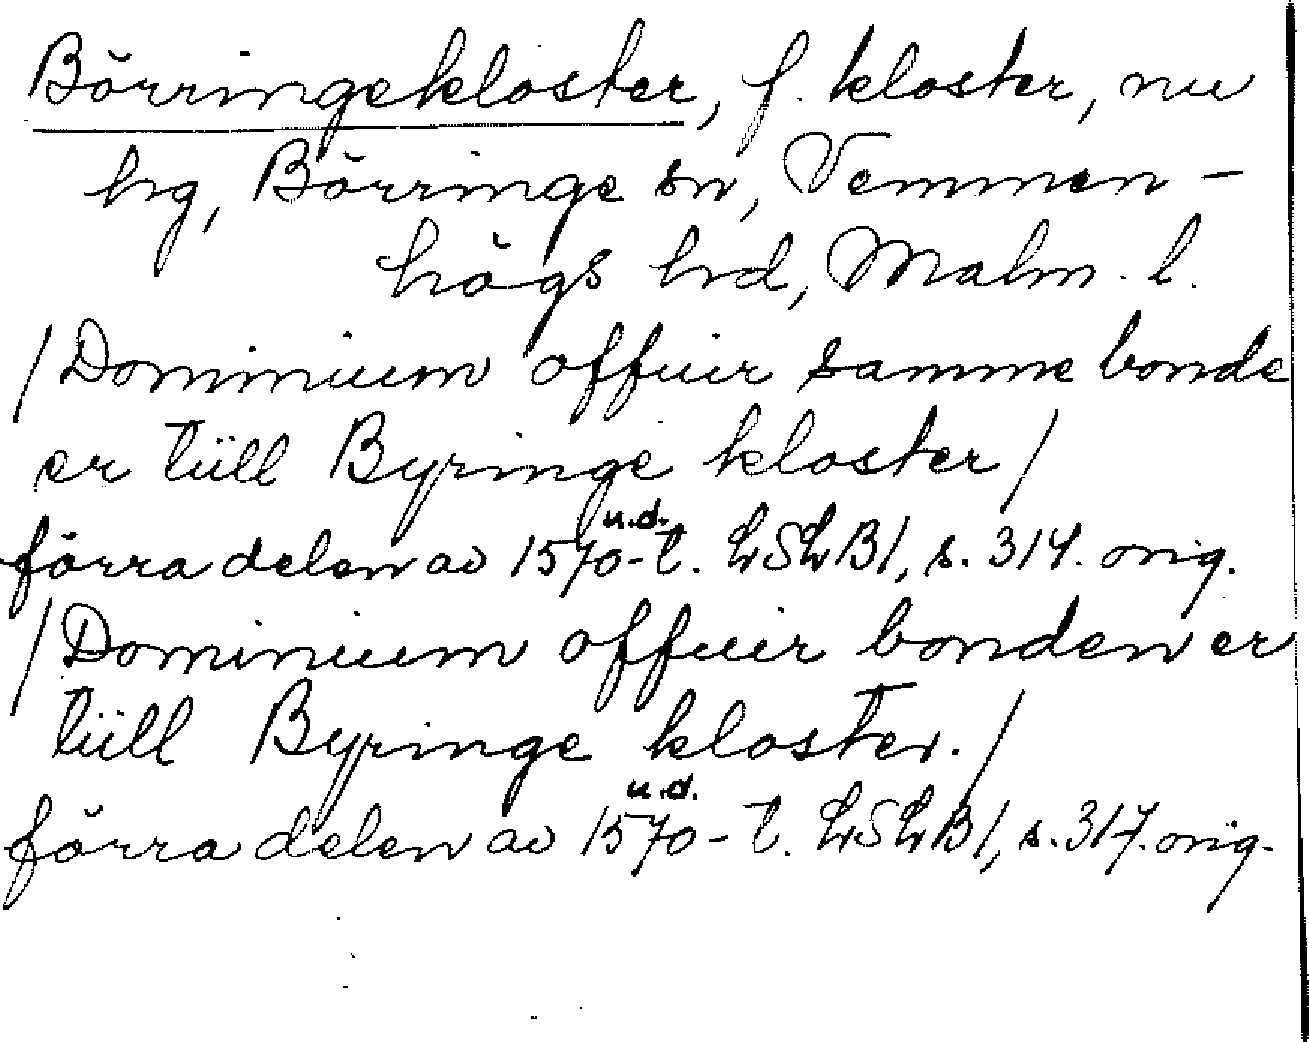 Börringekloster, f. kloster, nu
hg, Börringe sn, Vemmen-
högs hd, Malm. l.
/Dominium offuir samme bonde
er tüll Byringe kloster/
förra delen av 1570-t. u.d. LSLB1, s. 314. orig.
/Dominium offuir bonden er
tüll Byringe kloster./
förra delen av 1570-t. u.d. LSLB1, s. 317. orig.